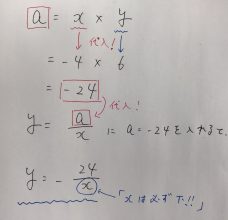 a = x × y
代入!
= -4 × 6
= -24
代入!
y = a/x に a = -24を入れると、
y = - 24/x
「xは必ず下!!」